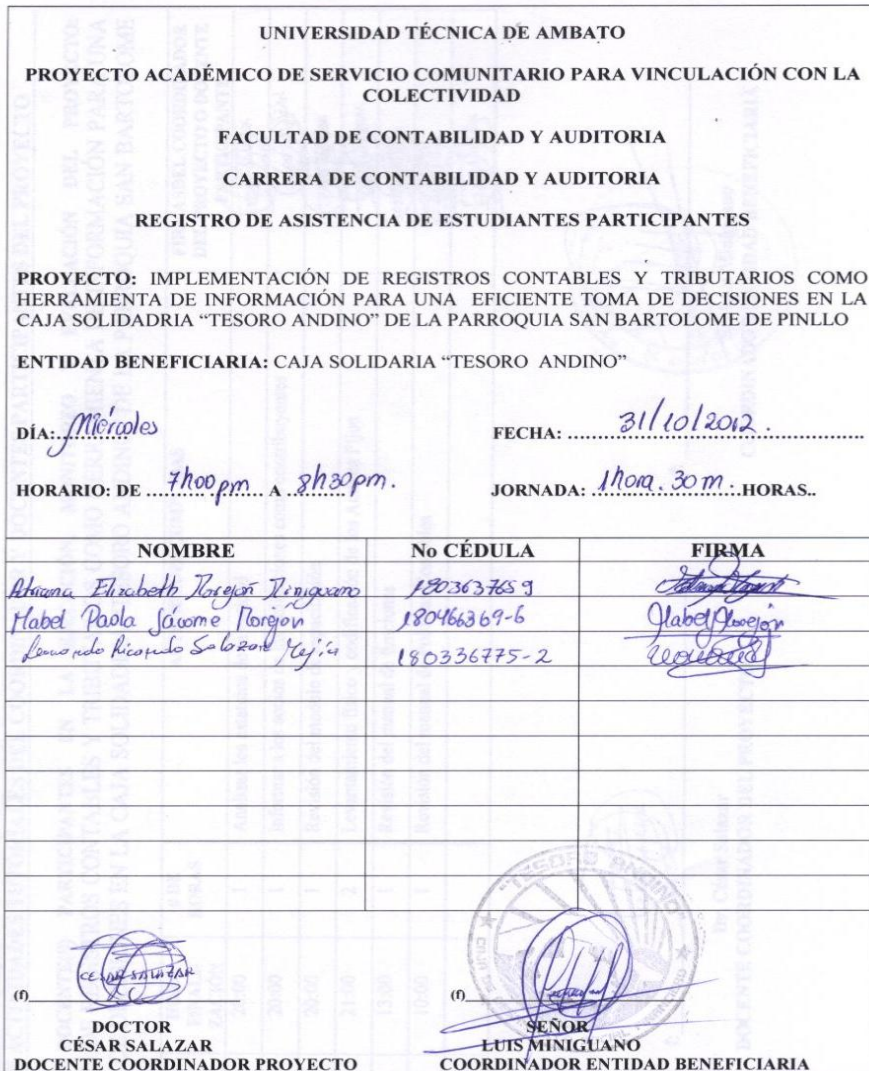 UNIVERSIDAD TÉCNICA DE AMBATO
PROYECTO ACADÉMICO DE SERVICIO COMUNITARIO PARA VINCULACIÓN CON LA
COLECTIVIDAD
FACULTAD DE CONTABILIDAD Y AUDITORIA
CARRERA DE CONTABILIDAD Y AUDITORIA
REGISTRO DE ASISTENCIA DE ESTUDIANTES PARTICIPANTES
PROYECTO: IMPLEMENTACIÓN DE REGISTROS CONTABLES Y TRIBUTARIOS COMO
HERRAMIENTA DE INFORMACIÓN PARA UNA EFICIENTE TOMA DE DECISIONES EN LA
CAJA SOLIDADRIA “TESORO ANDINO” DE LA PARROQUIA SAN BARTOLOME DE PINLLO
ENTIDAD BENEFICIARIA: CAJA SOLIDARIA “TESORO ANDINO”
DÍA: Miércoles FECHA: 31/10/2012.
HORARIO: DE 7h00 pm A 8h30 pm. JORNADA: 1hora. 30 m. HORAS..
NOMBRE No CÉDULA FIRMA
Adriana Elizabeth Morejón Miniguano 180363765 9
Mabel Paola Jácome Morejón 180466369-6 Mabel Morejón
Leonardo Ricardo Salazar Mejía 180336775-2
"TESORO ANDINO"
CESAR SALAZAR
(f) (f)
DOCTOR SEÑOR
CÉSAR SALAZAR LUIS MINIGUANO
DOCENTE COORDINADOR PROYECTO COORDINADOR ENTIDAD BENEFICIARIA